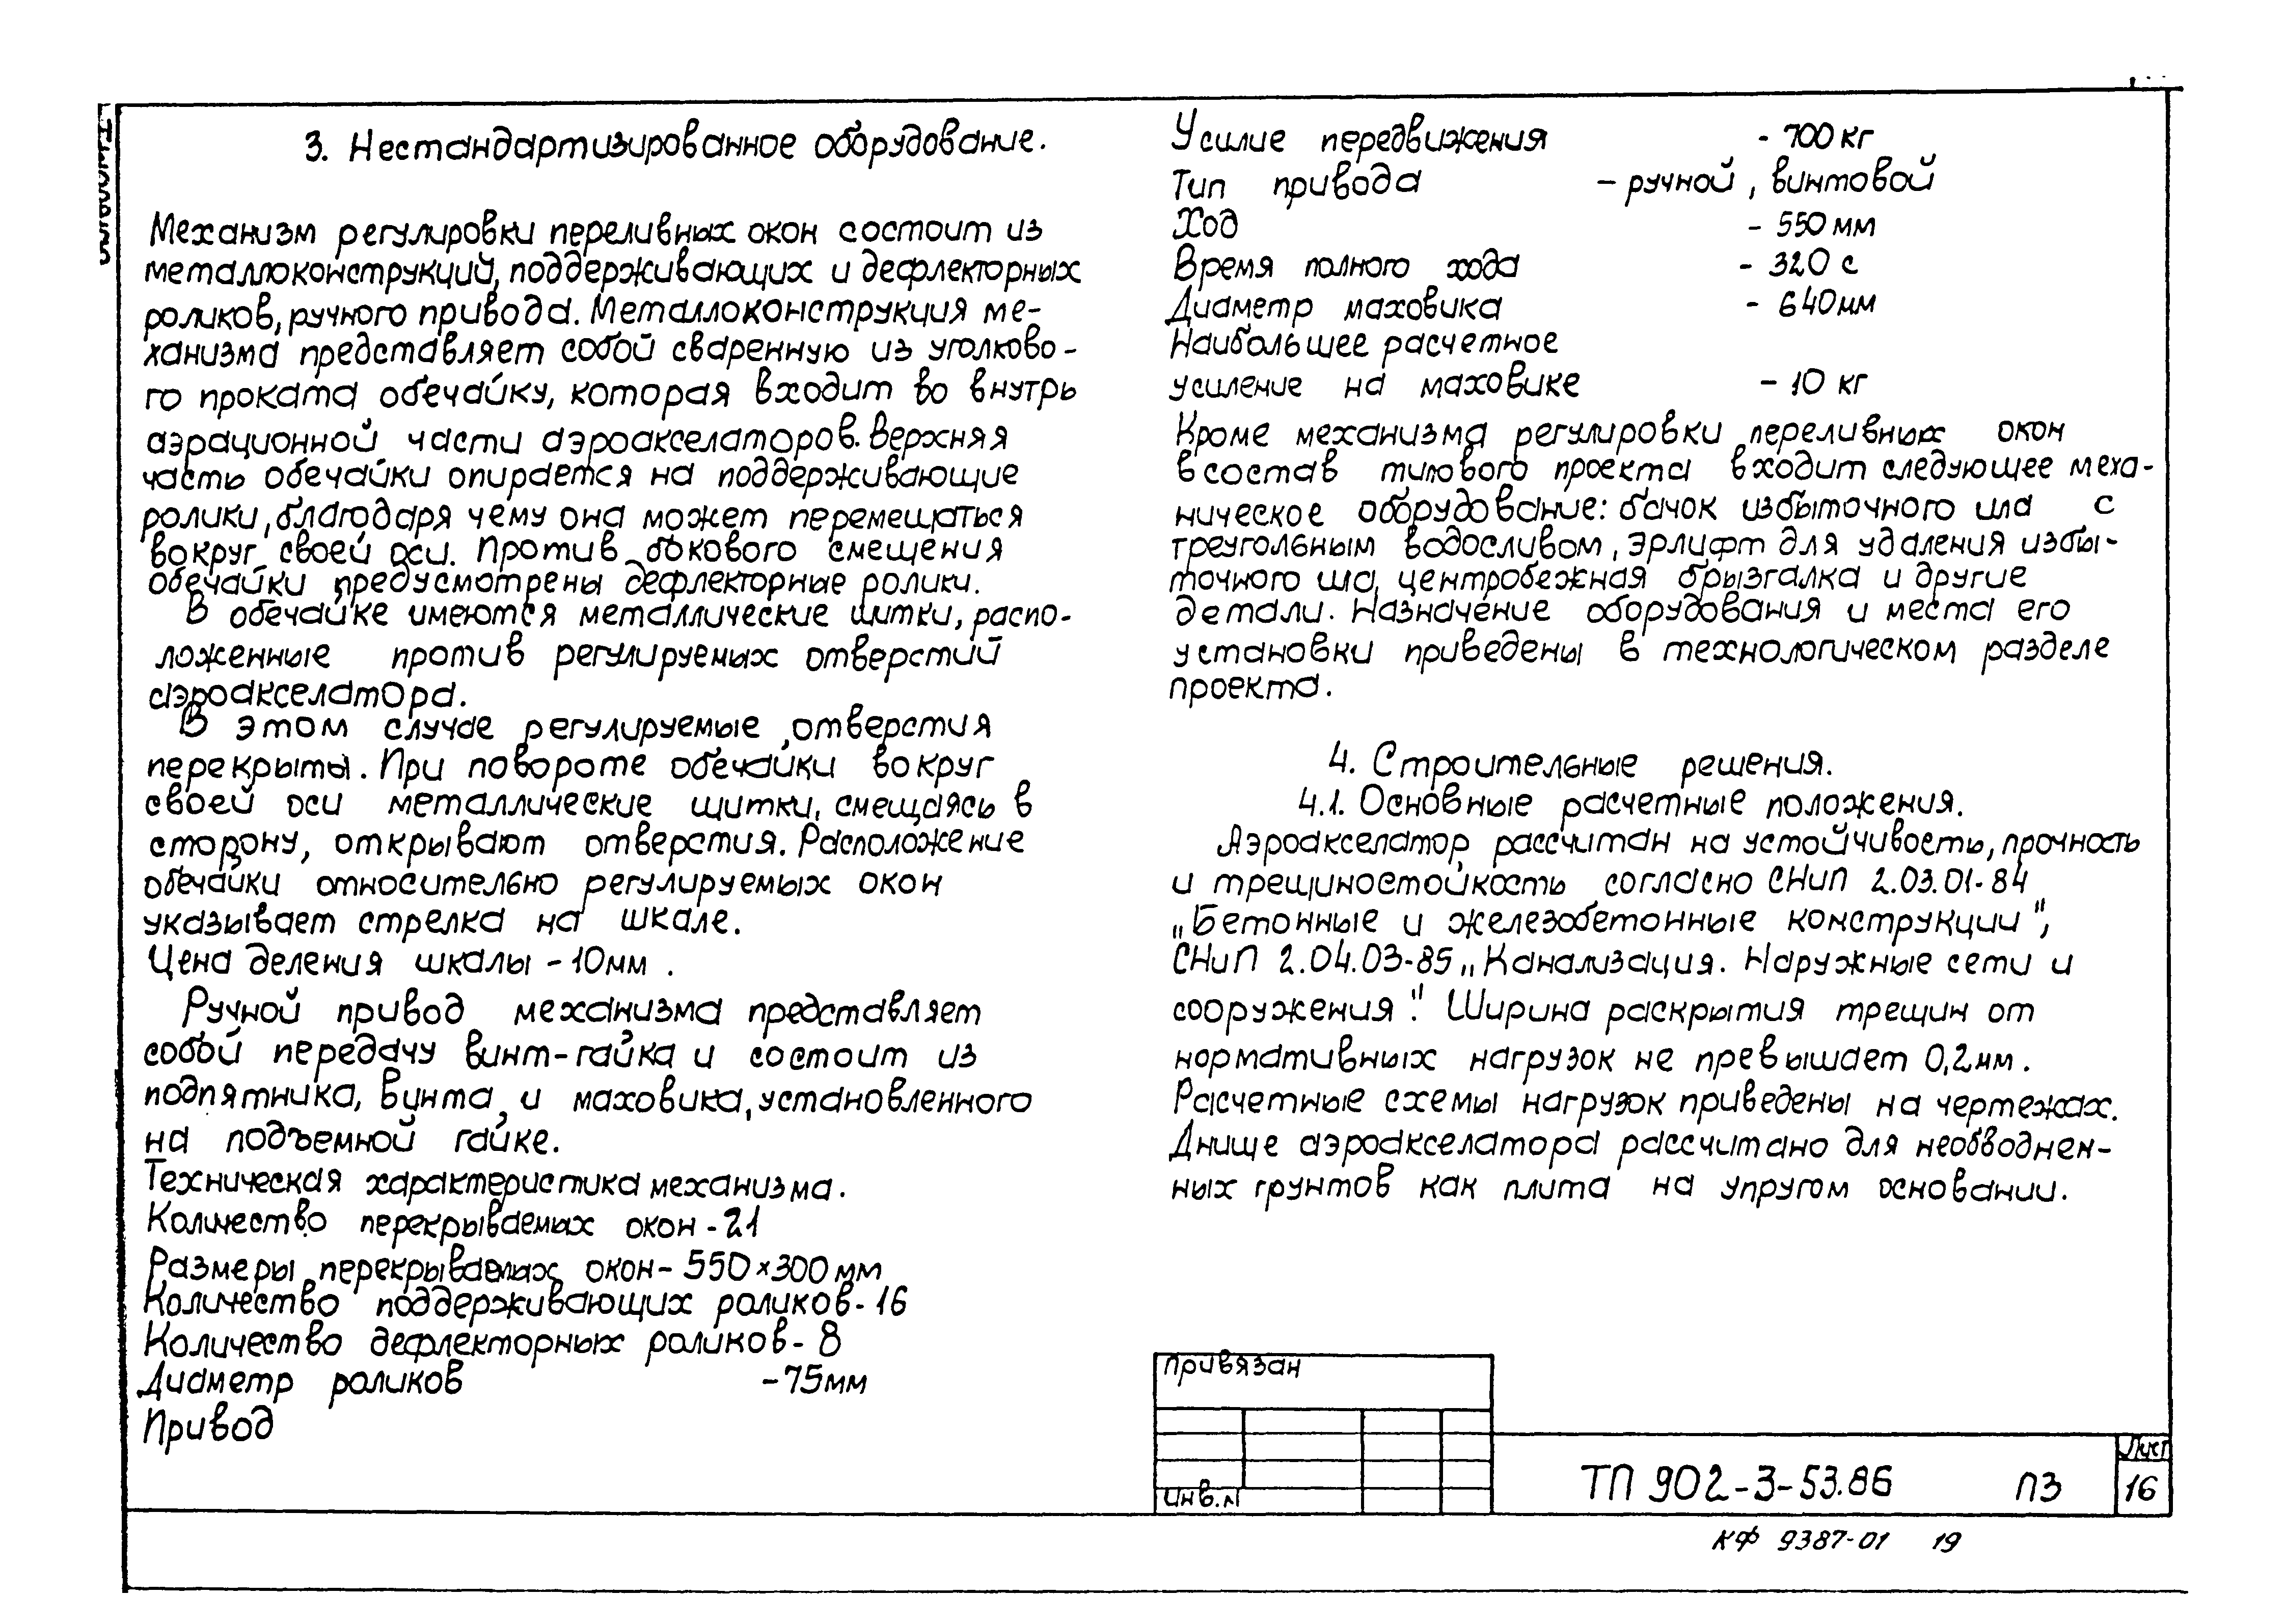 3. Нестандартизированное оборудование.
Механизм регулировки переливных окон состоит из
металлоконструкций, поддерживающих и дефлекторных
роликов, ручного привода. Металлоконструкция ме-
ханизма представляет собой сваренную из уголково-
го проката обечайку, которая входит во внутрь
аэрационной части аэроакселаторов. Верхняя
часть обечайки опирается на поддерживающие
ролики, благодаря чему она может перемещаться
вокруг своей оси. Против бокового смещения
обечайки предусмотрены дефлекторные ролики.
В обечайке имеются металлические щитки, распо-
ложенные против регулируемых отверстий
аэроакселатора.
В этом случае регулируемые отверстия
перекрыты. При повороте обечайки вокруг
своей оси металлические щитки, смещаясь в
сторону, открывают отверстия. Расположение
обечайки относительно регулируемых окон
указывает стрелка на шкале.
Цена деления шкалы - 10мм.
Ручной привод механизма представляет
собой передачу винт-гайка и состоит из
подпятника, винта и маховика, установленного
на подъемной гайке.
Техническая характеристика механизма.
Количество перекрываемых окон - 21
Размеры перекрываемых окон - 550×300 мм
Количество поддерживающих роликов - 16
Количество дефлекторных роликов - 8
Диаметр роликов - 75мм
Привод
Усилие передвижения - 700 кг
Тип привода - ручной, винтовой
Ход - 550 мм
Время полного хода - 320 с
Диаметр маховика - 640мм
Наибольшее расчетное
усиление на маховике - 10 кг
Кроме механизма регулировки переливных окон
в состав типового проекта входит следующее меха-
ническое оборудование: бачок избыточного ила с
треугольным водосливом, эрлифт для удаления избы-
точного ила, центробежная брызгалка и другие
детали. Назначение оборудования и места его
установки приведены в технологическом разделе
проекта.
4. Строительные решения.
4.1. Основные расчетные положения.
Аэроакселатор рассчитан на устойчивость, прочность
и трещиностойкость согласно СНиП 2.03.01-84
„Бетонные и железобетонные конструкции",
СНиП 2.04.03-85 „Канализация. Наружные сети и
сооружения". Ширина раскрытия трещин от
нормативных нагрузок не превышает 0,2мм.
Расчетные схемы нагрузок приведены на чертежах.
Днище аэроакселатора рассчитано для необводнен-
ных грунтов как плита на упругом основании.
Привязан
Инв.N
ТП 902-3-53.86 ПЗ
Лист
16
КФ 9387-01 19